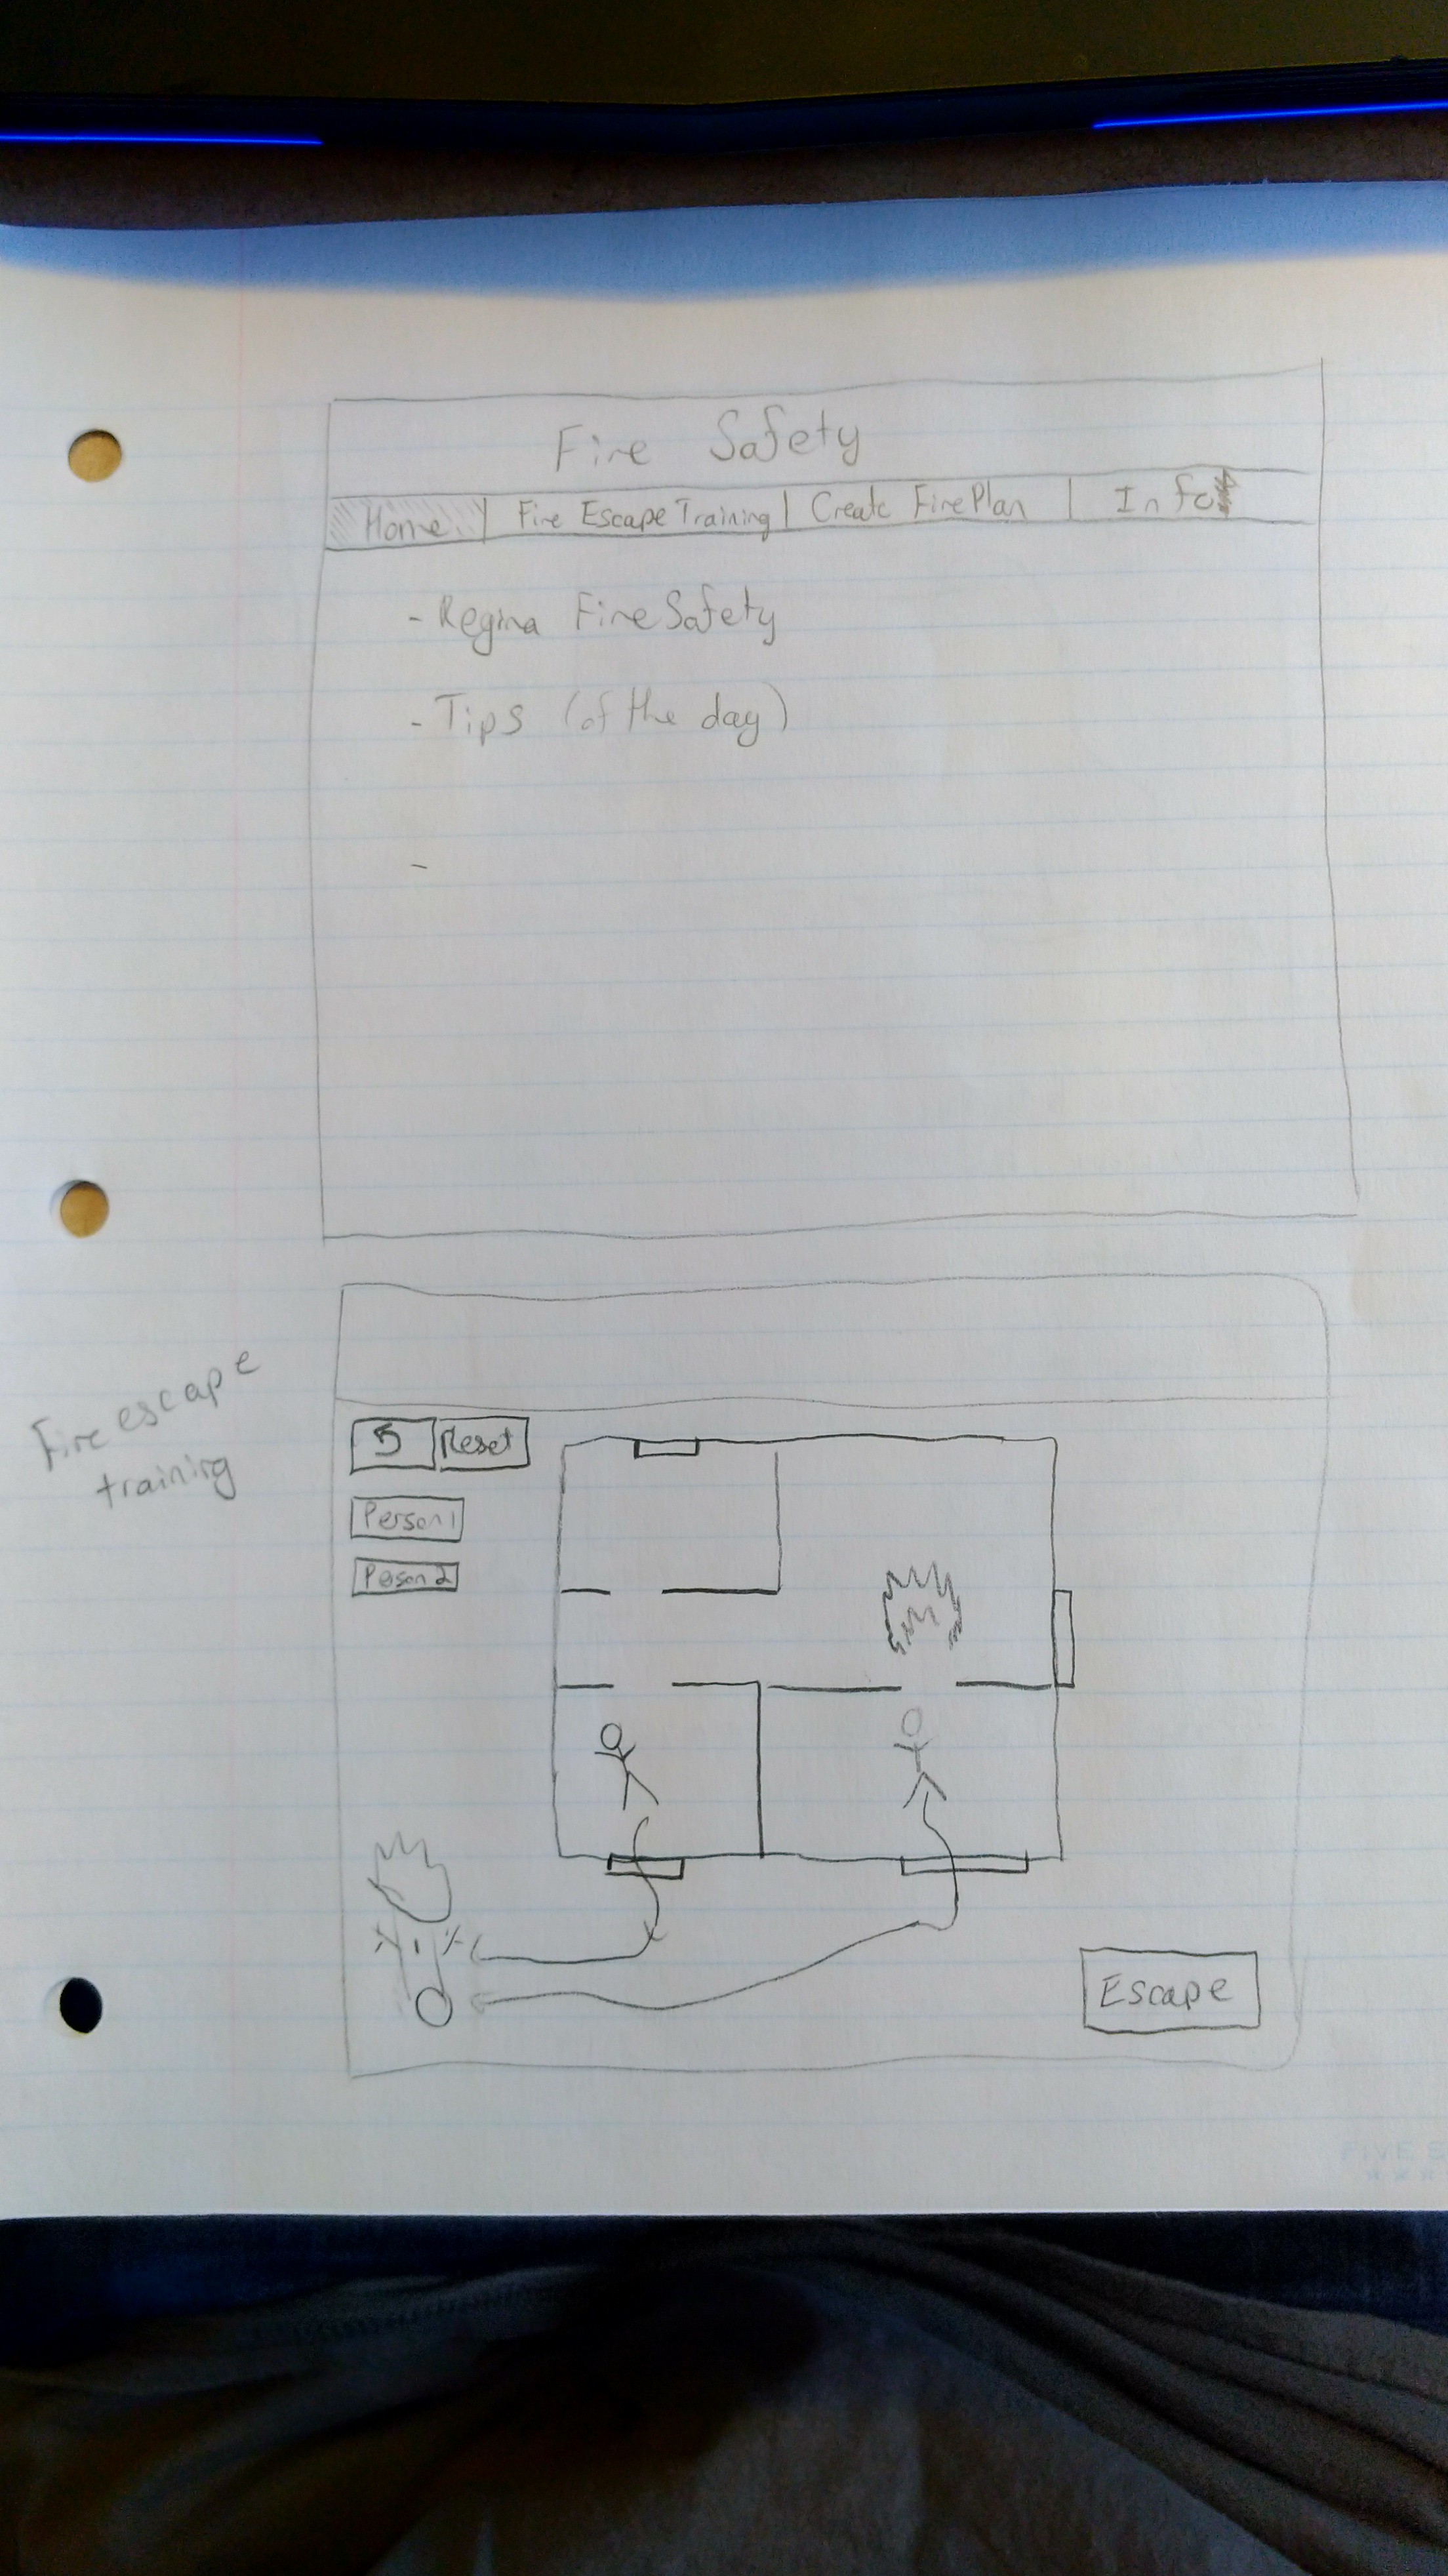 Fire Safety
Home | Fire Escape Training | Create Fire Plan | Info
- Regina Fire Safety
- Tips (of the day)
-
Fire escape
training
Reset
Person 1
Person 2
Escape
FIVE S